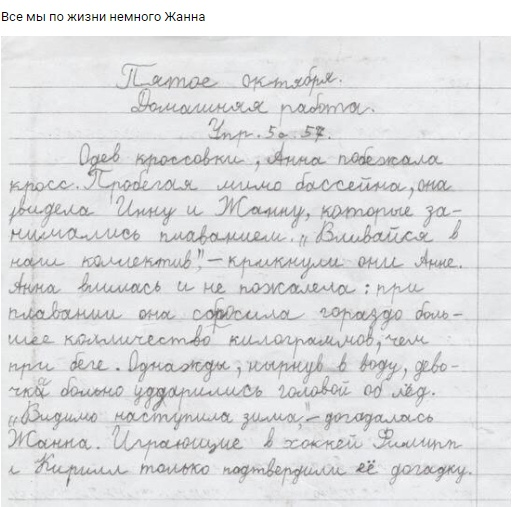 Все мы по жизни немного Жанна
Пятое октября.
Домашняя работа.
Упр. 5а. 57.
Одев кроссовки, Анна побежала
кросс. Пробегая мимо бассейна, она
увидела Инну и Жанну, которые за-
нимались плаванием. „Вливайся в
наш коллектив", – крикнули они Анне.
Анна влилась и не пожалела: при
плавании она сбросила гораздо боль-
шее колличество килограммов, чем
при беге. Однажды, нырнув в воду, дево-
чки больно уддарились головой об лёд.
„Видимо наступила зима," – догадалась
Жанна. Играющие в хоккей Филипп
и Кирилл только подтвердили её догадку.